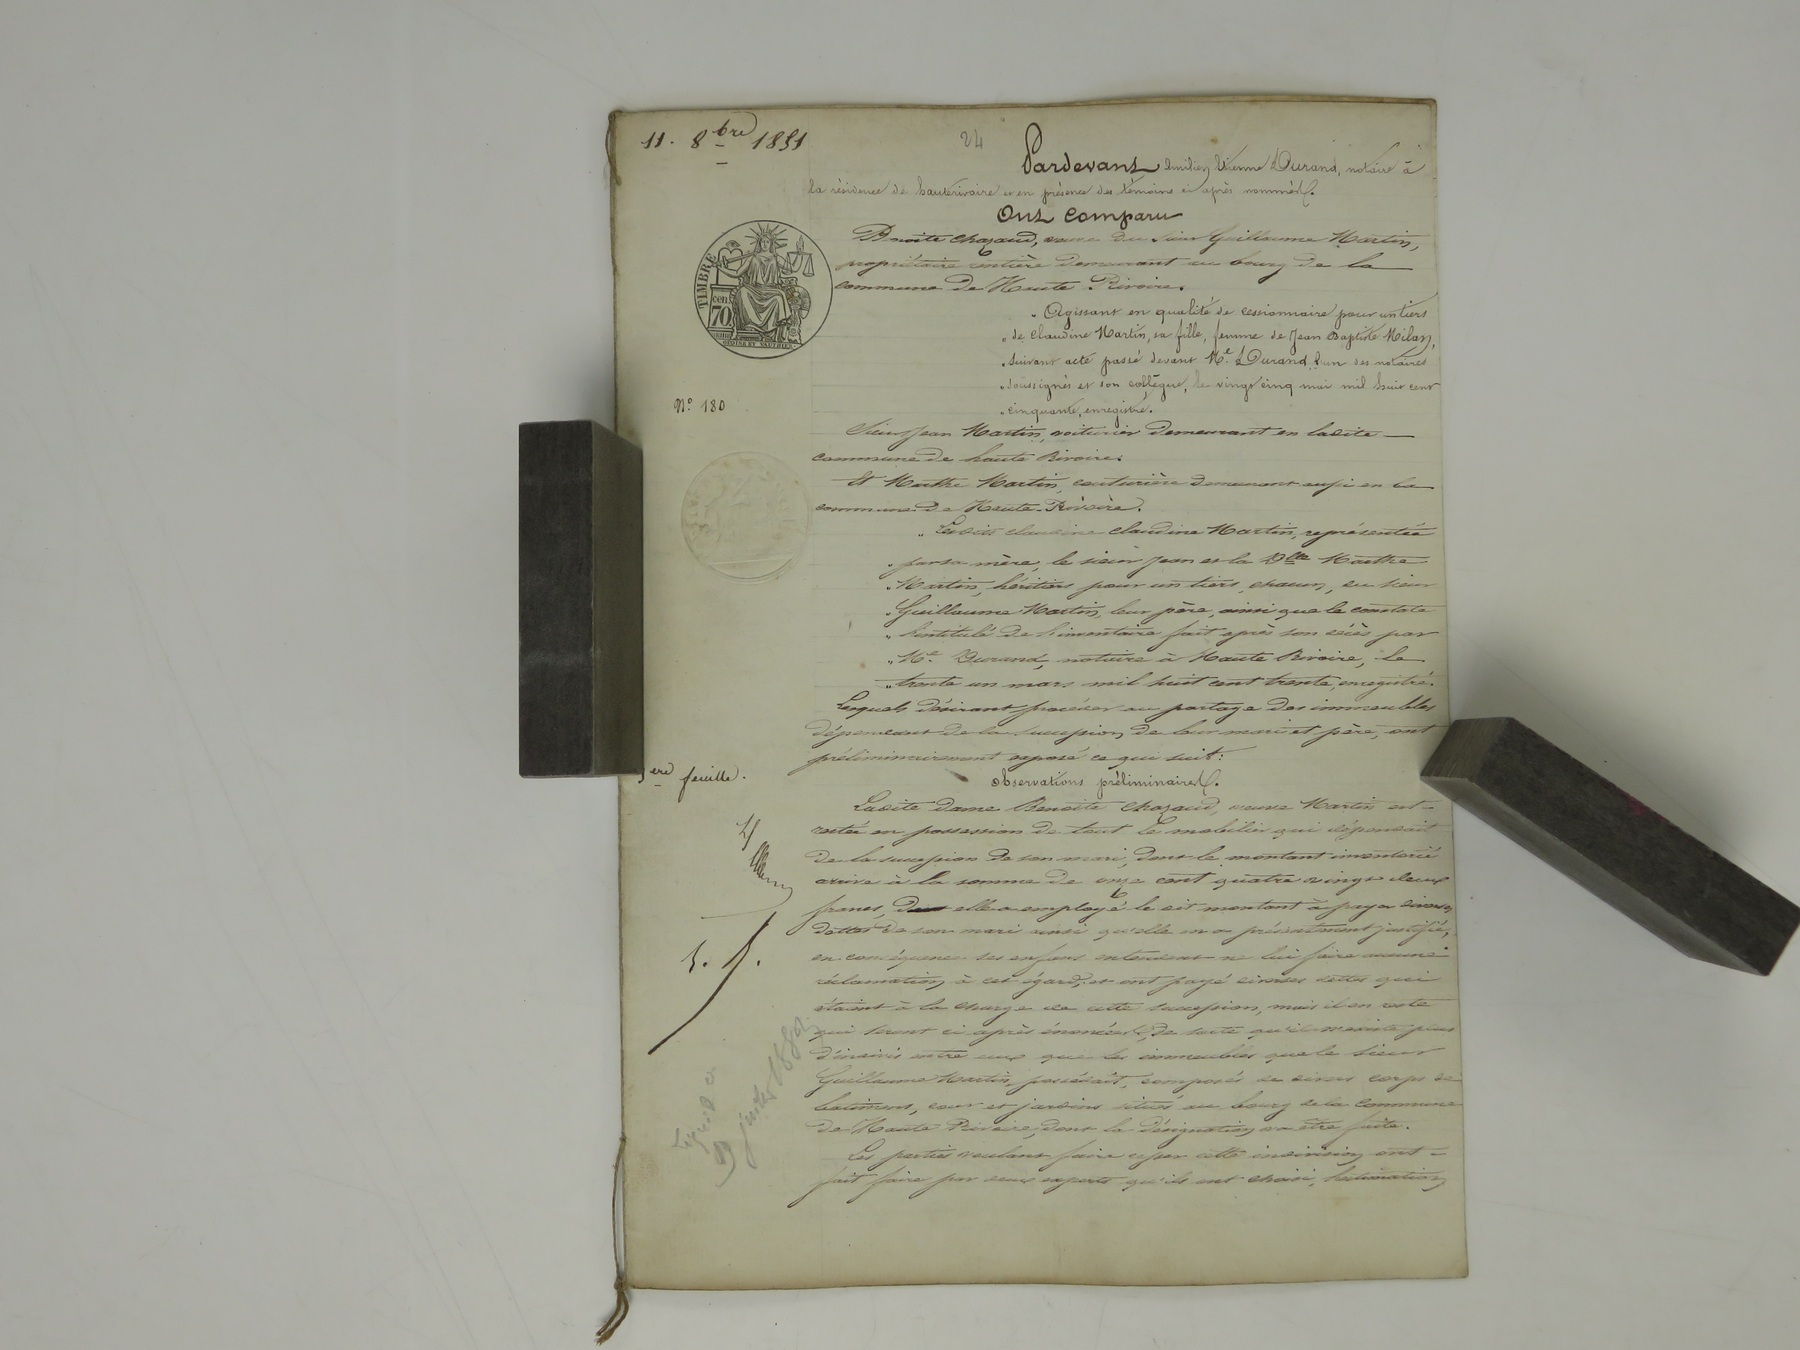 11. 8bre 1851
24
Pardevant Emilien Etienne Durand, notaire à
la résidence de hauterivoire et en présence des témoins ci après nommés.
Ont comparu
Benoite Chazaud, veuve du sieur Guillaume Martin,
propriétaire rentière demeurant au bourg de la
commune de Haute Rivoire.
" Agissant en qualité de cessionnaire pour un tiers
" de Claudine Martin, sa fille, femme de Jean Baptiste Milan,
" suivant acte passé devant Me Durand, l'un des notaires
" soussignés et son collègue, le vingt cinq mai mil huit cent
" cinquante, enregistré.
Sieur Jean Martin, voiturier demeurant en ladite
commune de haute Rivoire.
Et Marthe Martin, couturière demeurant aussi en la
commune de Haute-Rivoire.
" Claudine Martin, représentée
" par sa mère, le sieur Jean et la Dlle Marthe
" Martin, héritiers pour un tiers, chacun, du sieur
" Guillaume Martin, leur père, ainsi que le constate
" l'intitulé de l'inventaire fait après son décès par
" Me Durand, notaire à Haute Rivoire, le
" trente un mars mil huit cent trente, enregistré.
Lesquels désirant procéder au partage des immeubles
dépendant de la succession de leur mari et père, ont
préliminairement exposé ce qui suit:
observations préliminaires.
Ladite dame Benoite Chazaud, veuve Martin est
restée en possession de tout le mobilier qui dépendait
de la succession de son mari, dont le montant inventorié
arrive à la somme de onze cent quatre vingt deux
francs, elle a employé le dit montant à payer diverses
dettes de son mari ainsi qu'elle en a présentement justifié,
en conséquence ses enfans entendent ne lui faire aucune
réclamation à cet égard, et ont payé diverses dettes qui
étaient à la charge de cette succession, mais il en reste
qui seront ci après énoncées, de sorte qu'il n'existe plus
d'indivis entre eux que les immeubles que le sieur
Guillaume Martin possédait, composés de divers corps de
batiment, cour et jardins situés au bourg de la commune
de Haute Rivoire, dont la désignation va être faite.
Les parties voulant faire cesser cette indivision ont
fait faire par deux experts qu'ils ont choisi, l'estimation
TIMBRE
70 cen
No 180
1ere feuille.